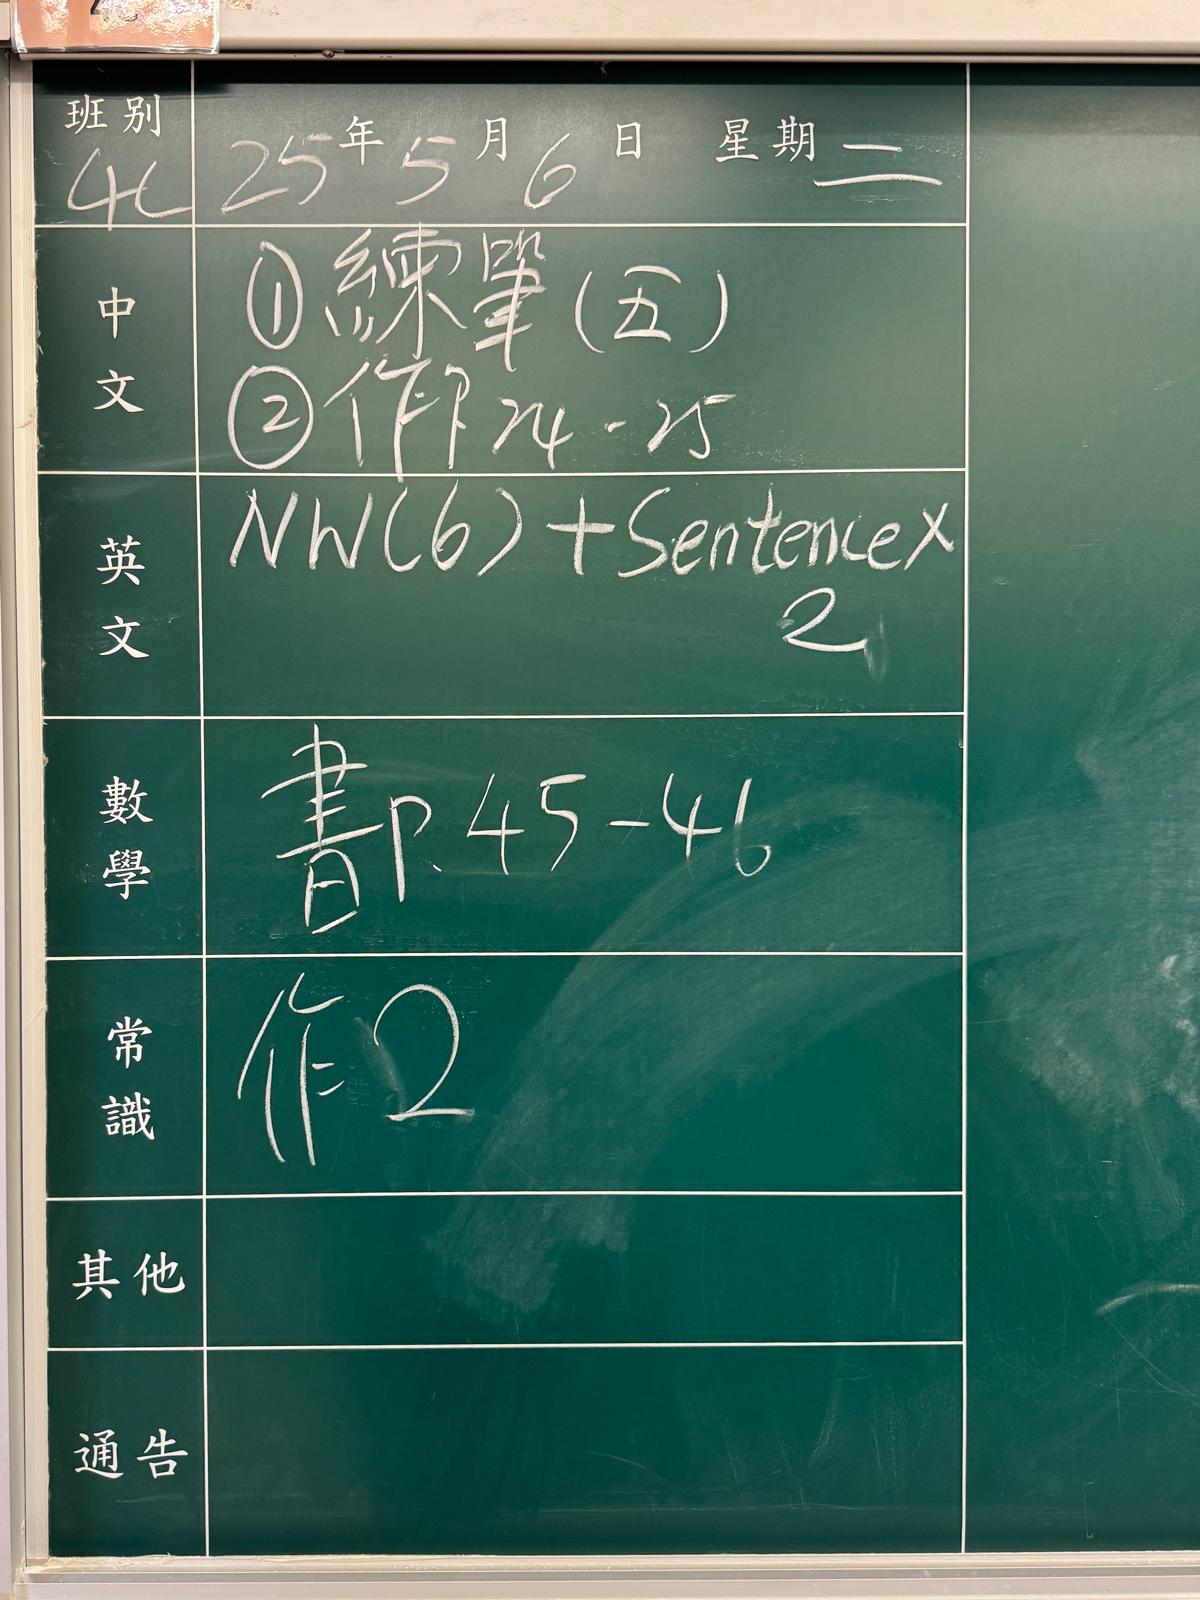 班別
4C
25年5月6日 星期二
中文
①練筆(五)
②作P24-25
英文
NW(6)+Sentencex
2
數學
書P.45-46
常識
作2
其他
通告